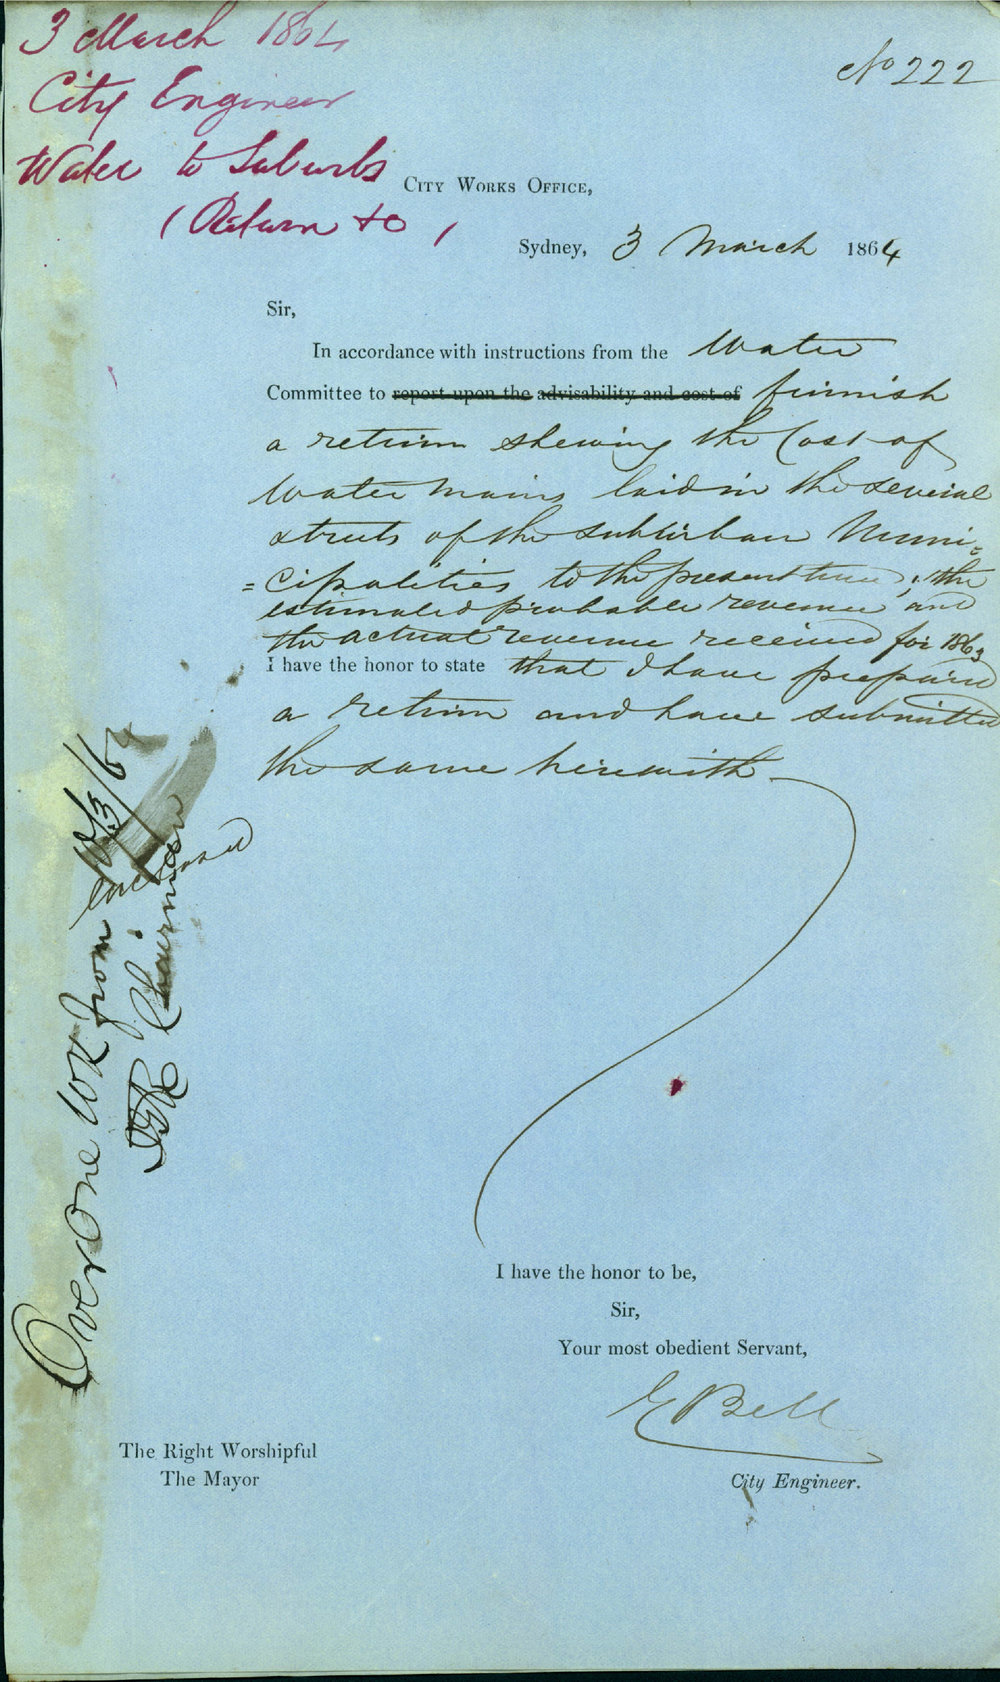 3 March 1864
City Engineer
Water to Suburbs
(Return to)
No 222
City Works Office,
Sydney, 3 March 1864
Sir,
In accordance with instructions from the Water
Committee to report upon the advisability and cost of furnish
a return shewing the Cost of
Water mains laid in the several
streets of the suburban Muni-
=cipalities to the present time, the
estimated probable revenue and
the actual revenue received for 1863
I have the honor to state that I have prepared
a return and have submitted
the same herewith
Over one WK from
enclosed
Chairman
I have the honor to be,
Sir,
Your most obedient Servant,
E Bell
City Engineer.
The Right Worshipful
The Mayor